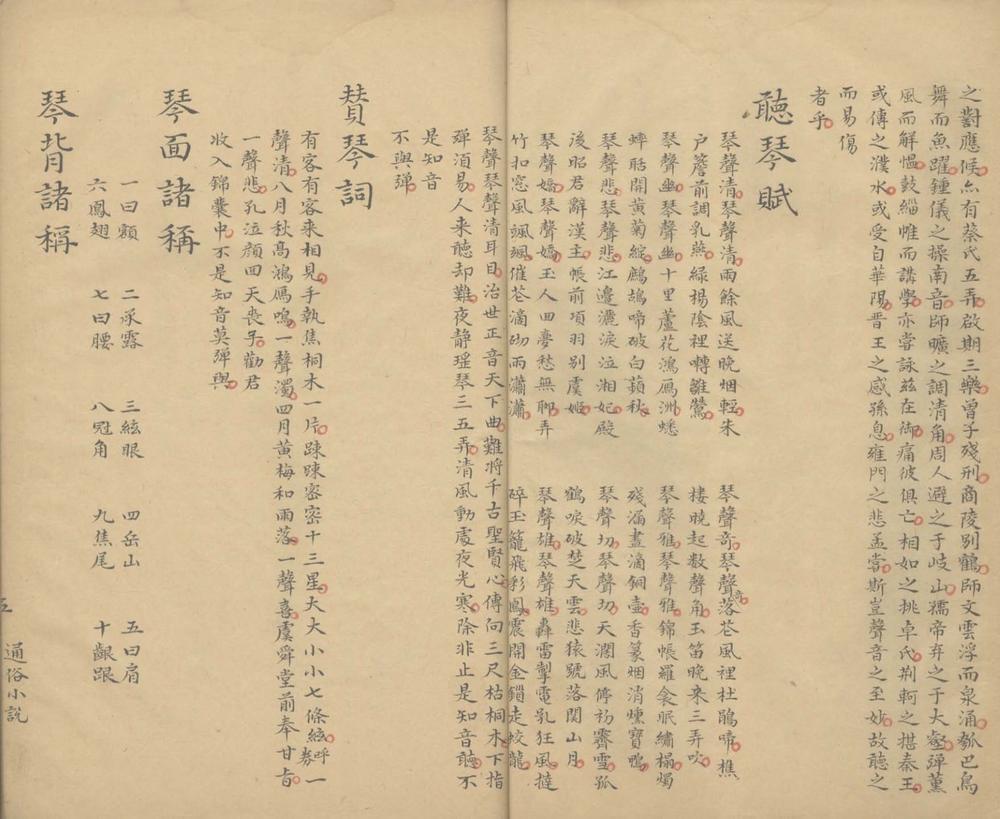 之對應候亦有蔡氏五弄啟期三樂曾子殘刑商陵別鶴師文雲浮而泉涌瓠巴鳥
舞而魚躍鍾儀之操南音師曠之調清角周人避之于岐山孺帝弃之于大壑彈薰
風而解慍鼓緇帷而講學亦嘗詠茲在御痛彼俱亡相如之挑卓氏荆軻之揕秦王
或傳之濮水或受自華陽晋王之感孫息雍門之悲孟嘗斯豈聲音之至妙故聽之
而易傷
者乎
聽琴賦
琴聲清琴聲清雨餘風送晚烟輕朱 琴聲奇琴聲奇落花風裡杜鵑啼樵
户簷前調乳燕綠楊陰裡囀雛鶯 樓曉起數聲角玉笛晚來三弄吹
琴聲幽琴聲幽十里蘆花鴻鴈洲蟋 琴聲雅琴聲雅錦帳羅衾眠繡榻燭
蟀聒開黄菊綻鷓鴣啼破白蘋秋 殘漏盡滴銅壺香篆烟消爐寶鴨
琴聲悲琴聲悲江邉灑淚泣湘妃殿 琴聲切琴聲切天濶風停初霽雪孤
後昭君辭漢主帳前項羽別虞姬 鶴唳破楚天雲悲猿號落関山月
琴聲嬌琴聲嬌玉人四夢愁無聊弄 琴聲雄琴聲雄轟雷掣電乳狂風撻
竹扣窓風颯颯催花滴砌雨瀟瀟 碎玉籠飛彩鳳震開金鎖走蛟龍
琴聲琴聲清耳目治世正音天下曲難將千古聖賢心傳向三尺枯桐木下指
殫湏易人来聽却難夜静瑶琴三五弄清風動處夜光寒除非止是知音聽不
是知音
不與彈
賛琴詞
有客有客来相見手執焦桐木一片踈踈密密十三星大大小小七條絃呼券一
聲清八月秋髙鴻鴈鳴一聲濁四月黄梅和雨落一聲喜虞舜堂前奉甘旨
一聲悲孔泣顔回天喪予勸君
收入錦囊中不是知音莫彈與
琴面諸稱
一曰額 二承露 三絃眼 四岳山 五曰肩
六鳳翅 七曰腰 八冠角 九焦尾 十齦跟
琴背諸稱
五
通俗小説